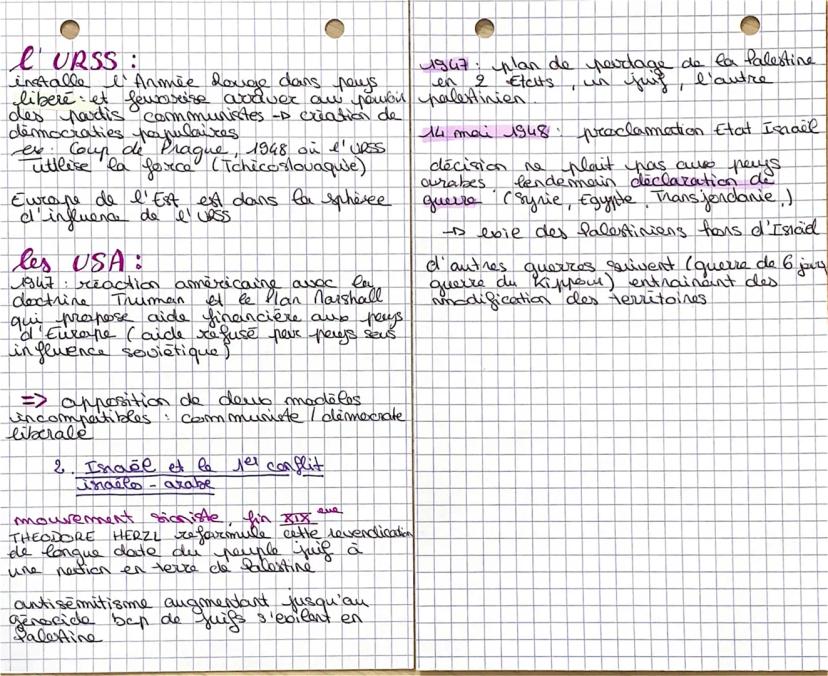 l'URSS :
installe l'Armée Rouge dans pays
libéré et favorise arrivée au pouvoir
des partis communistes → création de
démocraties populaires
ex : Coup de Prague, 1948 où l'URSS
utilise la force (Tchicoslovaquie)
Europe de l'Est est dans la sphère
d'influence de l'URSS
les USA :
1947 : réaction américaine avec la
doctrine Truman et le Plan Marshall
qui propose aide financière aux pays
d'Europe (aide refusé par pays sous
influence soviétique)
=> opposition de deux modèles
incompatibles : communiste / démocrate
libérale
2. Israël et le 1er conflit
israélo-arabe
mouvement sioniste, fin XIX eme
THEODORE HERZL reformule cette revendication
de longue date du peuple juif à
une nation en terre de Palestine
antisémitisme augmentant jusqu'au
génocide bcp de juifs s'exilent en
Palestine
1947 : plan de partage de la Palestine
en 2 États, un juif, l'autre
palestinien.
14 mai 1948 : proclamation Etat Israël
décision ne plait pas aux pays
arabes, lendemain déclaration de
guerre (Syrie, Egypte, Transjordanie,)
→ exie des Palestiniens hors d'Israël
d'autres guerres suivent (guerre de 6 jours
guerre du Kippour) entrainant des
modification des territoires